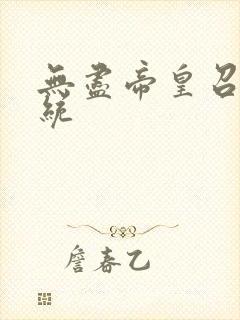 無盡帝皇召
統
詹春乙